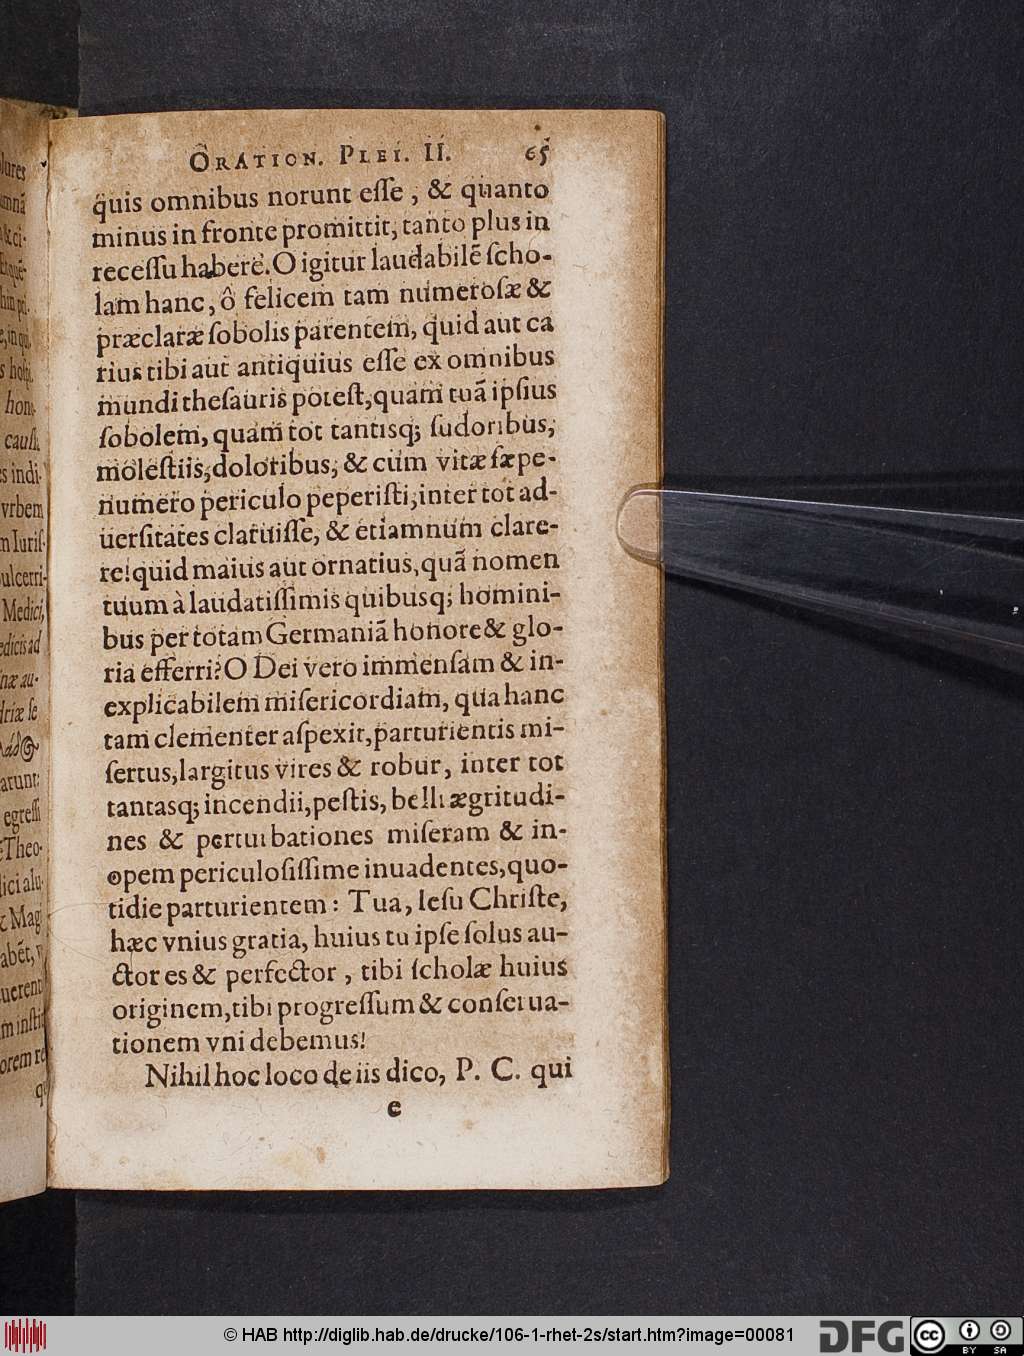 ORATION. PLEI. II. 65
quis omnibus norunt eſſe, & quanto
minus in fronte promittit, tanto plus in
receſſu habere. O igitur laudabilē ſcho-
lam hanc, ô felicem tam numeroſæ &
præclaræ ſobolis parentem, quid aut ca
rius tibi aut antiquius eſſe ex omnibus
mundi theſauris poteſt, quam tuā ipſius
ſobolem, quam tot tantisq; ſudoribus,
moleſtiis, doloribus, & cùm vitæ ſæpe-
numero periculo peperiſti, inter tot ad-
uerſitates claruiſſe, & etiamnum clare-
re! quid maius aut ornatius, quā nomen
tuum à laudatiſſimis quibusq; homini-
bus per totam Germaniā honore & glo-
ria efferri? O Dei vero immenſam & in-
explicabilem miſericordiam, qua hanc
tam clementer aſpexit, parturientis mi-
ſertus, largitus vires & robur, inter tot
tantasq; incendii, peſtis, belli ægritudi-
nes & perturbationes miſeram & in-
opem periculoſiſſime inuadentes, quo-
tidie parturientem: Tua, Ieſu Chriſte,
hæc vnius gratia, huius tu ipſe ſolus au-
ctor es & perfector, tibi ſcholæ huius
originem, tibi progreſſum & conſerua-
tionem vni debemus!
Nihil hoc loco de iis dico, P. C. qui
e
hon-
cauſſ.
s indi-
vrbem
m Iuriſ-
ulcerri-
Medici,
edicis ad
næ au-
driæ ſe
egreſſi
Theo-
lici alu-
© HAB http://diglib.hab.de/drucke/106-1-rhet-2s/start.htm?image=00081
DFG
cc
BY SA